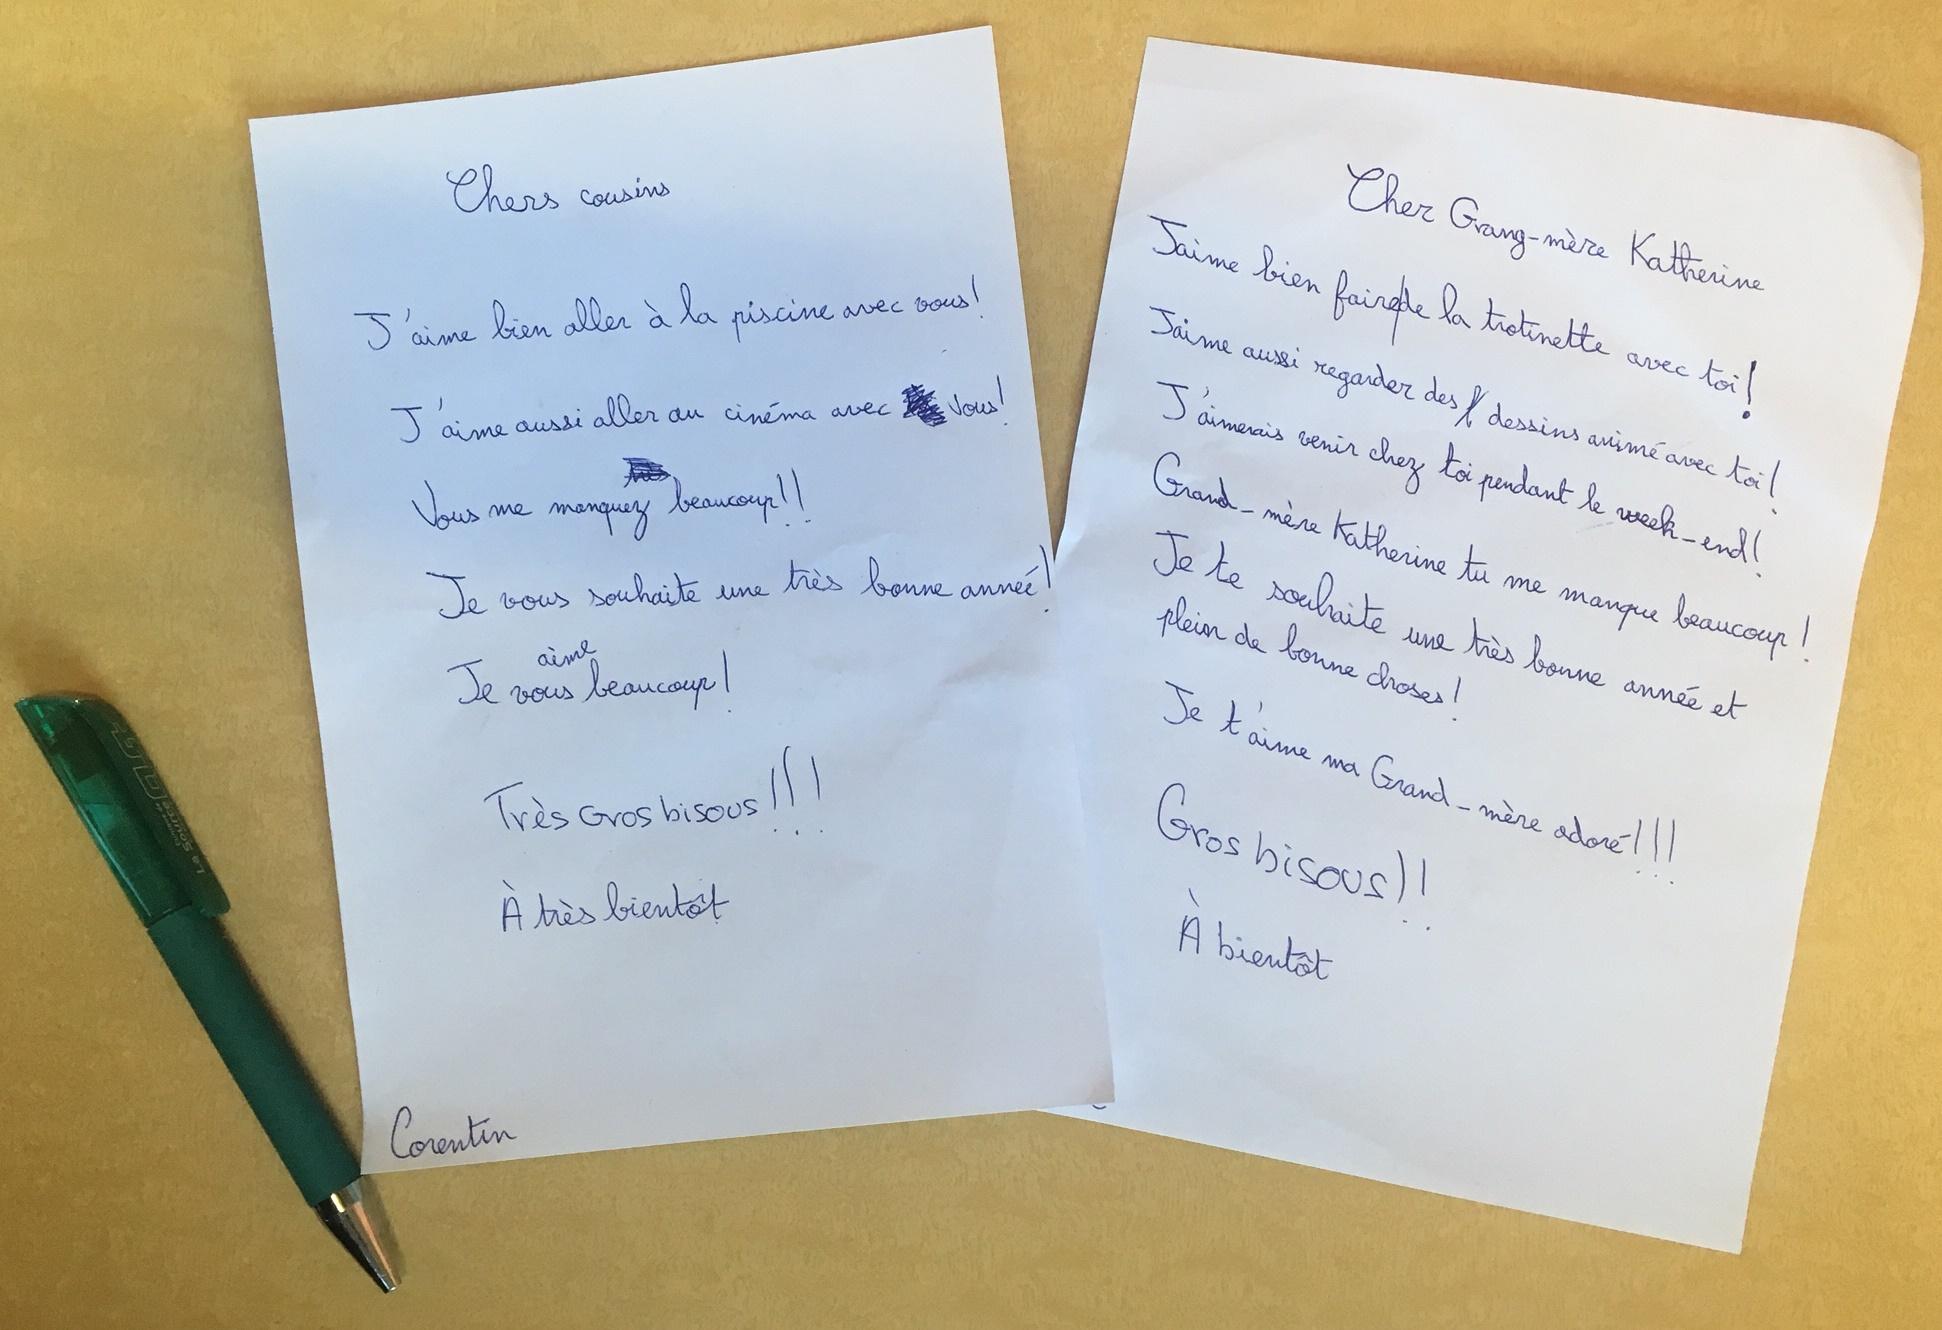 Chers cousins
J'aime bien aller à la piscine avec vous!
J'aime aussi aller au cinéma avec vous!
Vous me manquez beaucoup!!
Je vous souhaite une très bonne année!
aime
Je vous beaucoup!
Très Gros bisous!!!
À très bientôt
Corentin
Cher Grang-mère Katherine
Jaime bien faire de la trotinette avec toi!
Jaime aussi regarder des dessins animé avec toi!
J'aimerais venir chez toi pendant le week-end!
Grand-mère Katherine tu me manque beaucoup!
Je te souhaite une très bonne année et
plein de bonne choses!
Je t'aime ma Grand-mère adoré!!!
Gros bisous!!
À bientôt
La Source